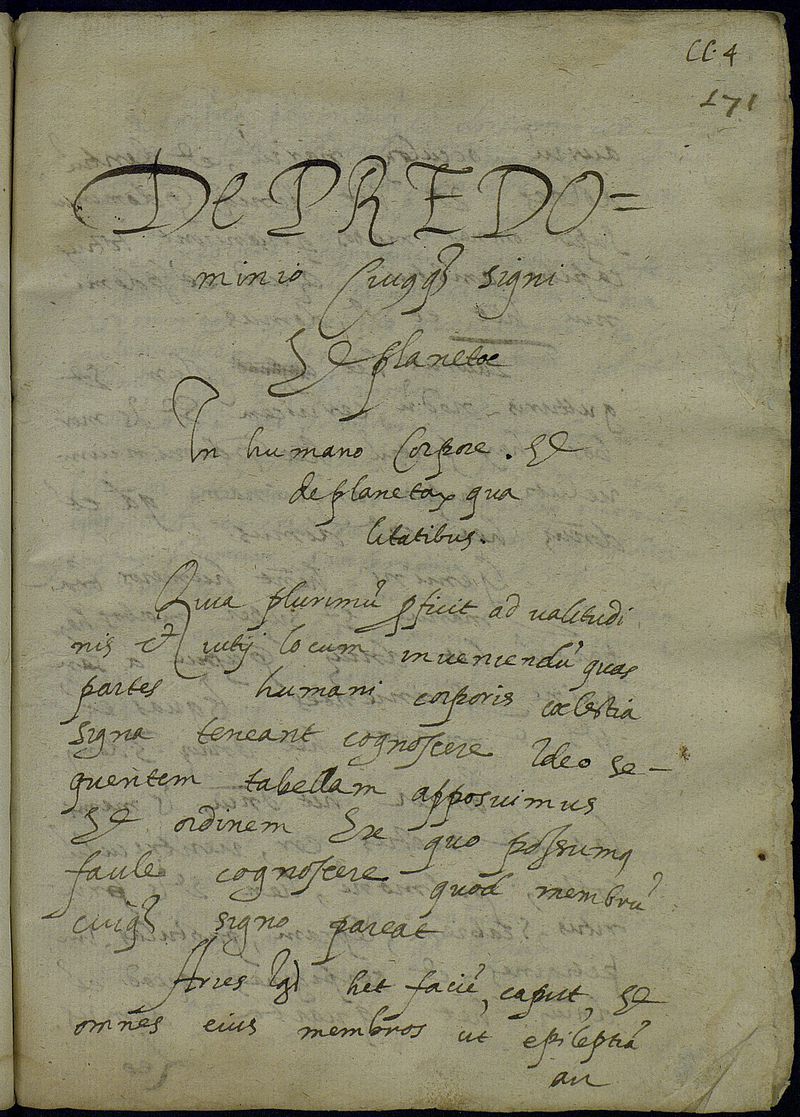 CC. 4
171
De PREDO=
minio Cuiuqȝ signi
Se planetae
In humano Corpore. Se
de planetaꝝ qua
litatibus.
Quia plurimū ꝓficit ad valitudi
nis et vitij locum inveniendū quas
partes humani corporis cœlestia
signa teneant cognoscere Ideo se-
quentem tabellam apposuimus
Se ordinem Ex quo possumꝯ
facile cognoscere quod membrū
cuiqȝ signo pareat
Aries het faciē, caput, Se
omnes eius membros ut epileptiā
au